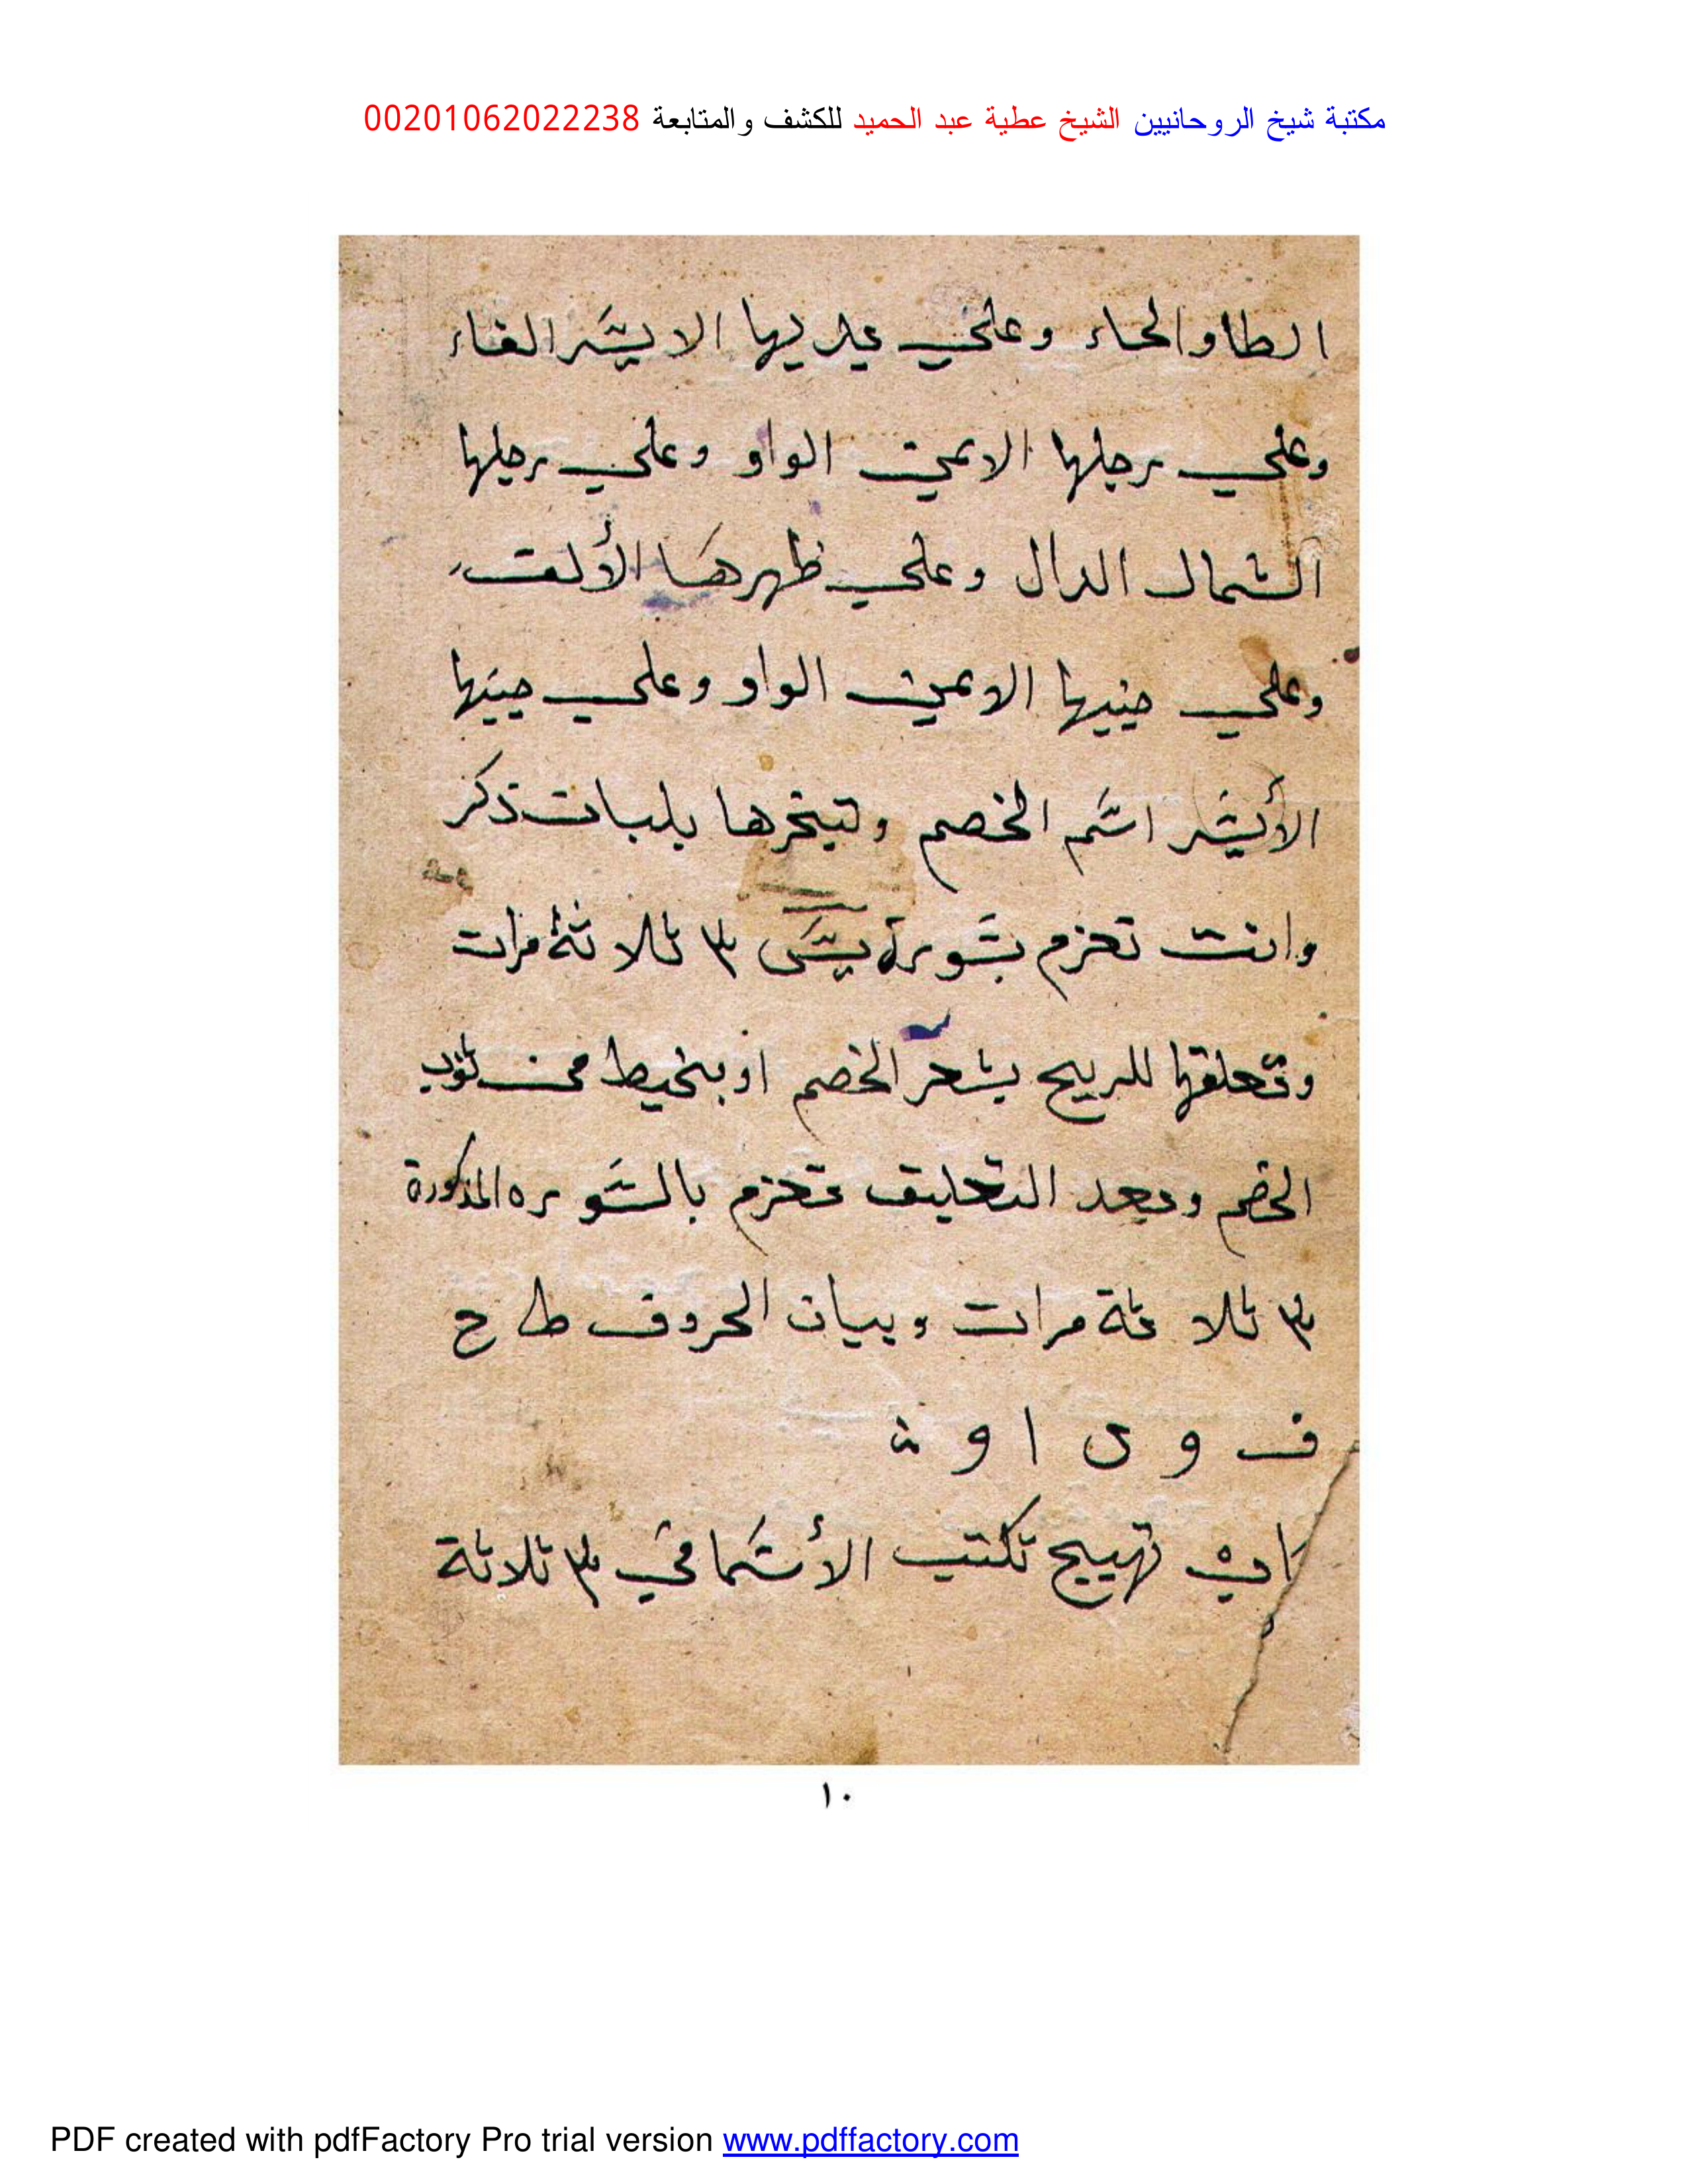 مكتبة شيخ الروحانيين الشيخ عطية عبد الحميد للكشف والمتابعة 00201062022238
الطا والحاء وعلي يديها الايسر الفاء
وعلي رجلها الايمن الواو وعلي رجلها
الشمال الدال وعلي ظهرها الألف
وعلي جنبها الايمن الواو وعلي جنبها
الأيسر اسم الخصم وتبخرها بلبان ذكر
وانت تعزم بسورة يس ٣ ثلاثة مرات
وتعلقها للريح بشعر الخصم او بخيط من ثوب
الخصم وبعد التعليق تعزم بالسوره المذكورة
٣ ثلاثة مرات وبيان الحروف ط ح
ف و ا و
تهييج تكتب الأسما في ٣ ثلاثة
١٠
PDF created with pdfFactory Pro trial version www.pdffactory.com